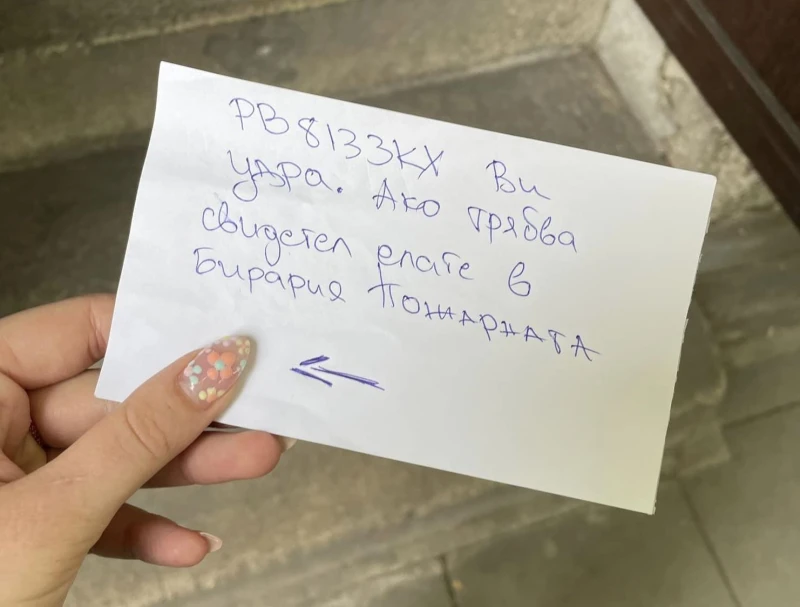 PB8133KX Ви
удра. Ако трябва
свидетел елате в
Бирария Пожарната